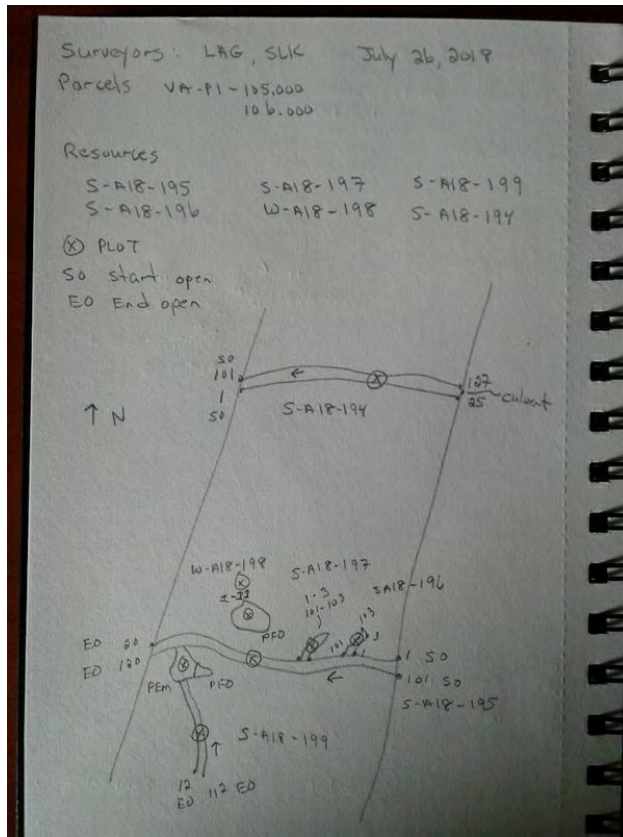 Surveyors: LAG, SLK July 26, 2018
Parcels VA-PI-105.000
106.000
Resources
S-A18-195 S-A18-197 S-A18-199
S-A18-196 W-A18-198 S-A18-194
ⓧ PLOT
SO Start open
EO End open
SO
101
1
SO
127
25 culvert
S-A18-194
↑ N
W-A18-198
S-A18-197
SA18-196
1-11
1-3
101-103
103
3
101
1
PFO
EO 20
EO 120
1 SO
101 SO
PEM
PFO
S-A18-195
S-A18-199
12
EO
112 EO